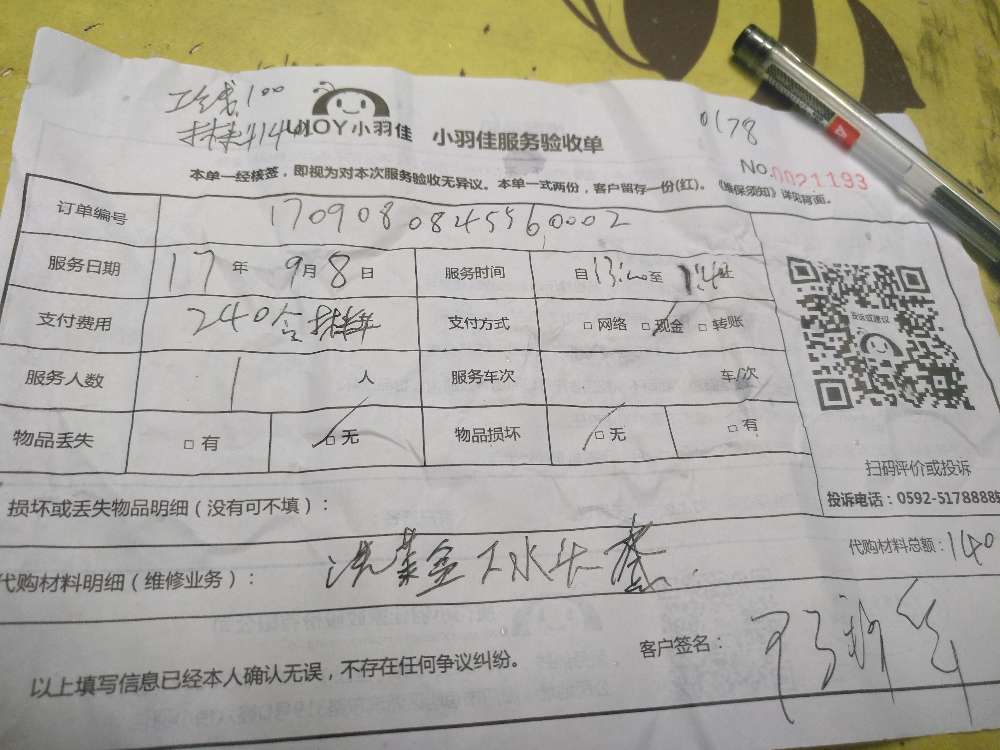 工钱100
材料140
0178
IJOY小羽佳 小羽佳服务验收单
No.0021193
本单一经核签，即视为对本次服务验收无异议。本单一式两份，客户留存一份(红)。《维保须知》详见背面。
订单编号 1709080845560002
服务日期 17年 9月 8日 服务时间 自13:00至 止
支付费用 240含材料 支付方式 □网络 □现金 □转账
投诉或建议
服务人数 1 人 服务车次 车/次
物品丢失 □有 □无 物品损坏 □无 □有
扫码评价或投诉
投诉电话：0592-5178888
损坏或丢失物品明细（没有可不填）：
代购材料明细（维修业务）： 洗菜盆下水头一套 代购材料总额：140
以上填写信息已经本人确认无误，不存在任何争议纠纷。 客户签名：